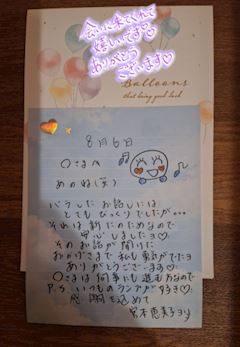 会いに来てくれて
嬉しいです♡
ありがとう
ございます♡
Balloons
that bring good luck
8月6日
○さまへ
あのね(笑)
こうしたお話しには
とてもびっくりでしたが…
それは新たのためなので
安心しましたヨ♡
そのお話が聞けた
おかげさまで私も
ありがとうございます♡
○さまは何事にも進む方なので
P.S. いつものランチが好き♡
感謝を込めて
より